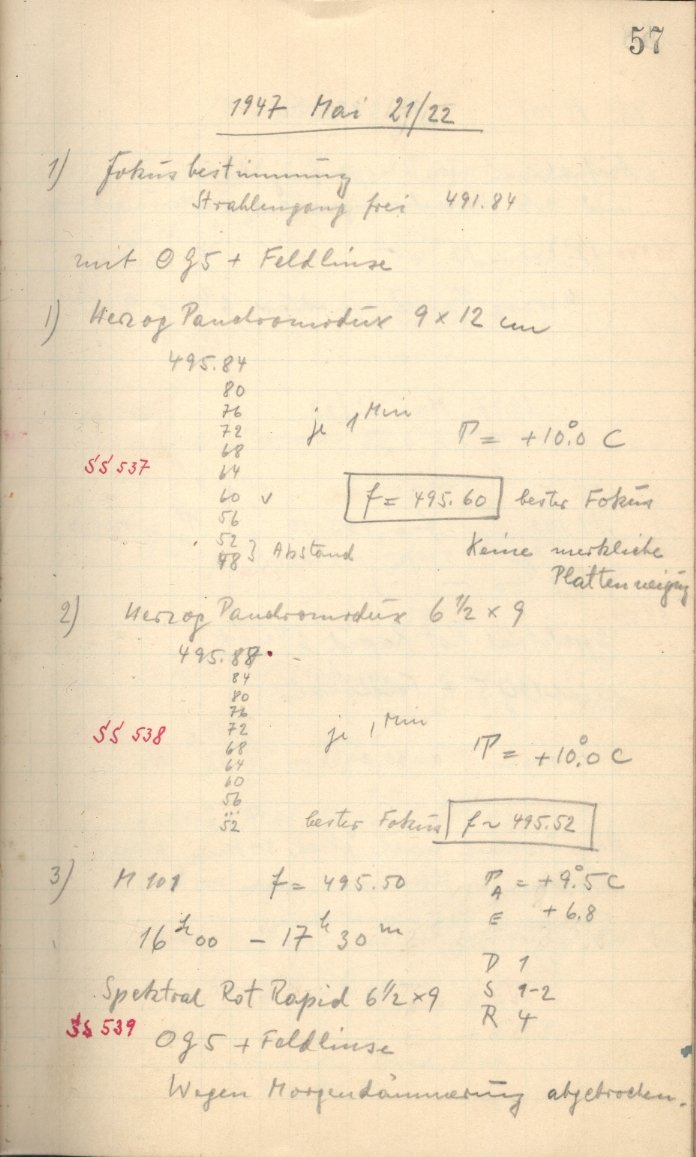 57
1947 Mai 21/22
1) Fokusbestimmung
Strahlengang frei 491.84
mit OG5 + Feldlinse
1) Herzog Panchromodux 9 x 12 cm
495.84
80
76
72 je 1 Min T = +10°.0 C
68
SS 537 64
60 v f = 495.60 bester Fokus
56
52 Keine merkliche
48 } Abstand Plattenneigung
2) Herzog Panchromodux 6 1/2 x 9
495.88
84
80
76
SS 538 72 je 1 Min
68 T = +10°.0 C
64
60
56
52 bester Fokus f ~ 495.52
3) M 101 f = 495.50 T A = +9°.5 C
E +6.8
16 h 00 – 17 h 30 m
D 1
Spektral Rot Rapid 6 1/2 x 9 S 1-2
R 4
SS 539 OG5 + Feldlinse
Wegen Morgendämmerung abgebrochen.